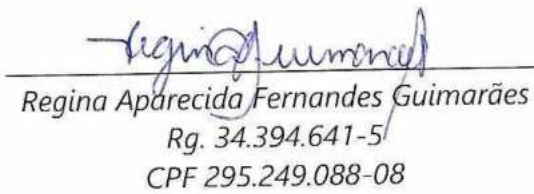 Regina Guimarães
Regina Aparecida Fernandes Guimarães
Rg. 34.394.641-5
CPF 295.249.088-08